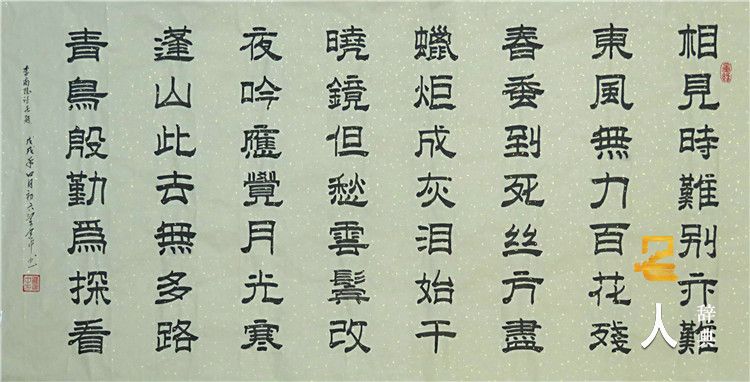 相見時難別亦難
東風無力百花殘
春蚕到死丝方盡
蠟炬成灰泪始干
曉鏡但愁雲鬢改
夜吟應覺月光寒
蓬山此去無多路
青鳥殷勤爲探看
李商隱詩無題
戊戌年四月初六
名人
辞典